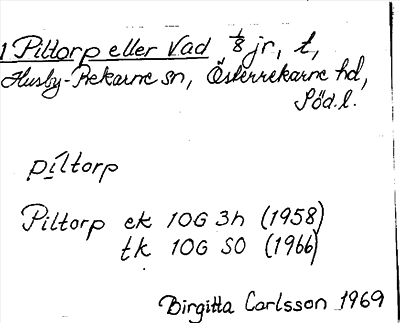 1 Piltorp eller Vad 1/8 jr, t,
Husby-Rekarne sn, Österrekarne hd,
Söd. l.
píltorp
Piltorp ek 10G 3h (1958)
tk 10G SO (1966)
Birgitta Carlsson 1969